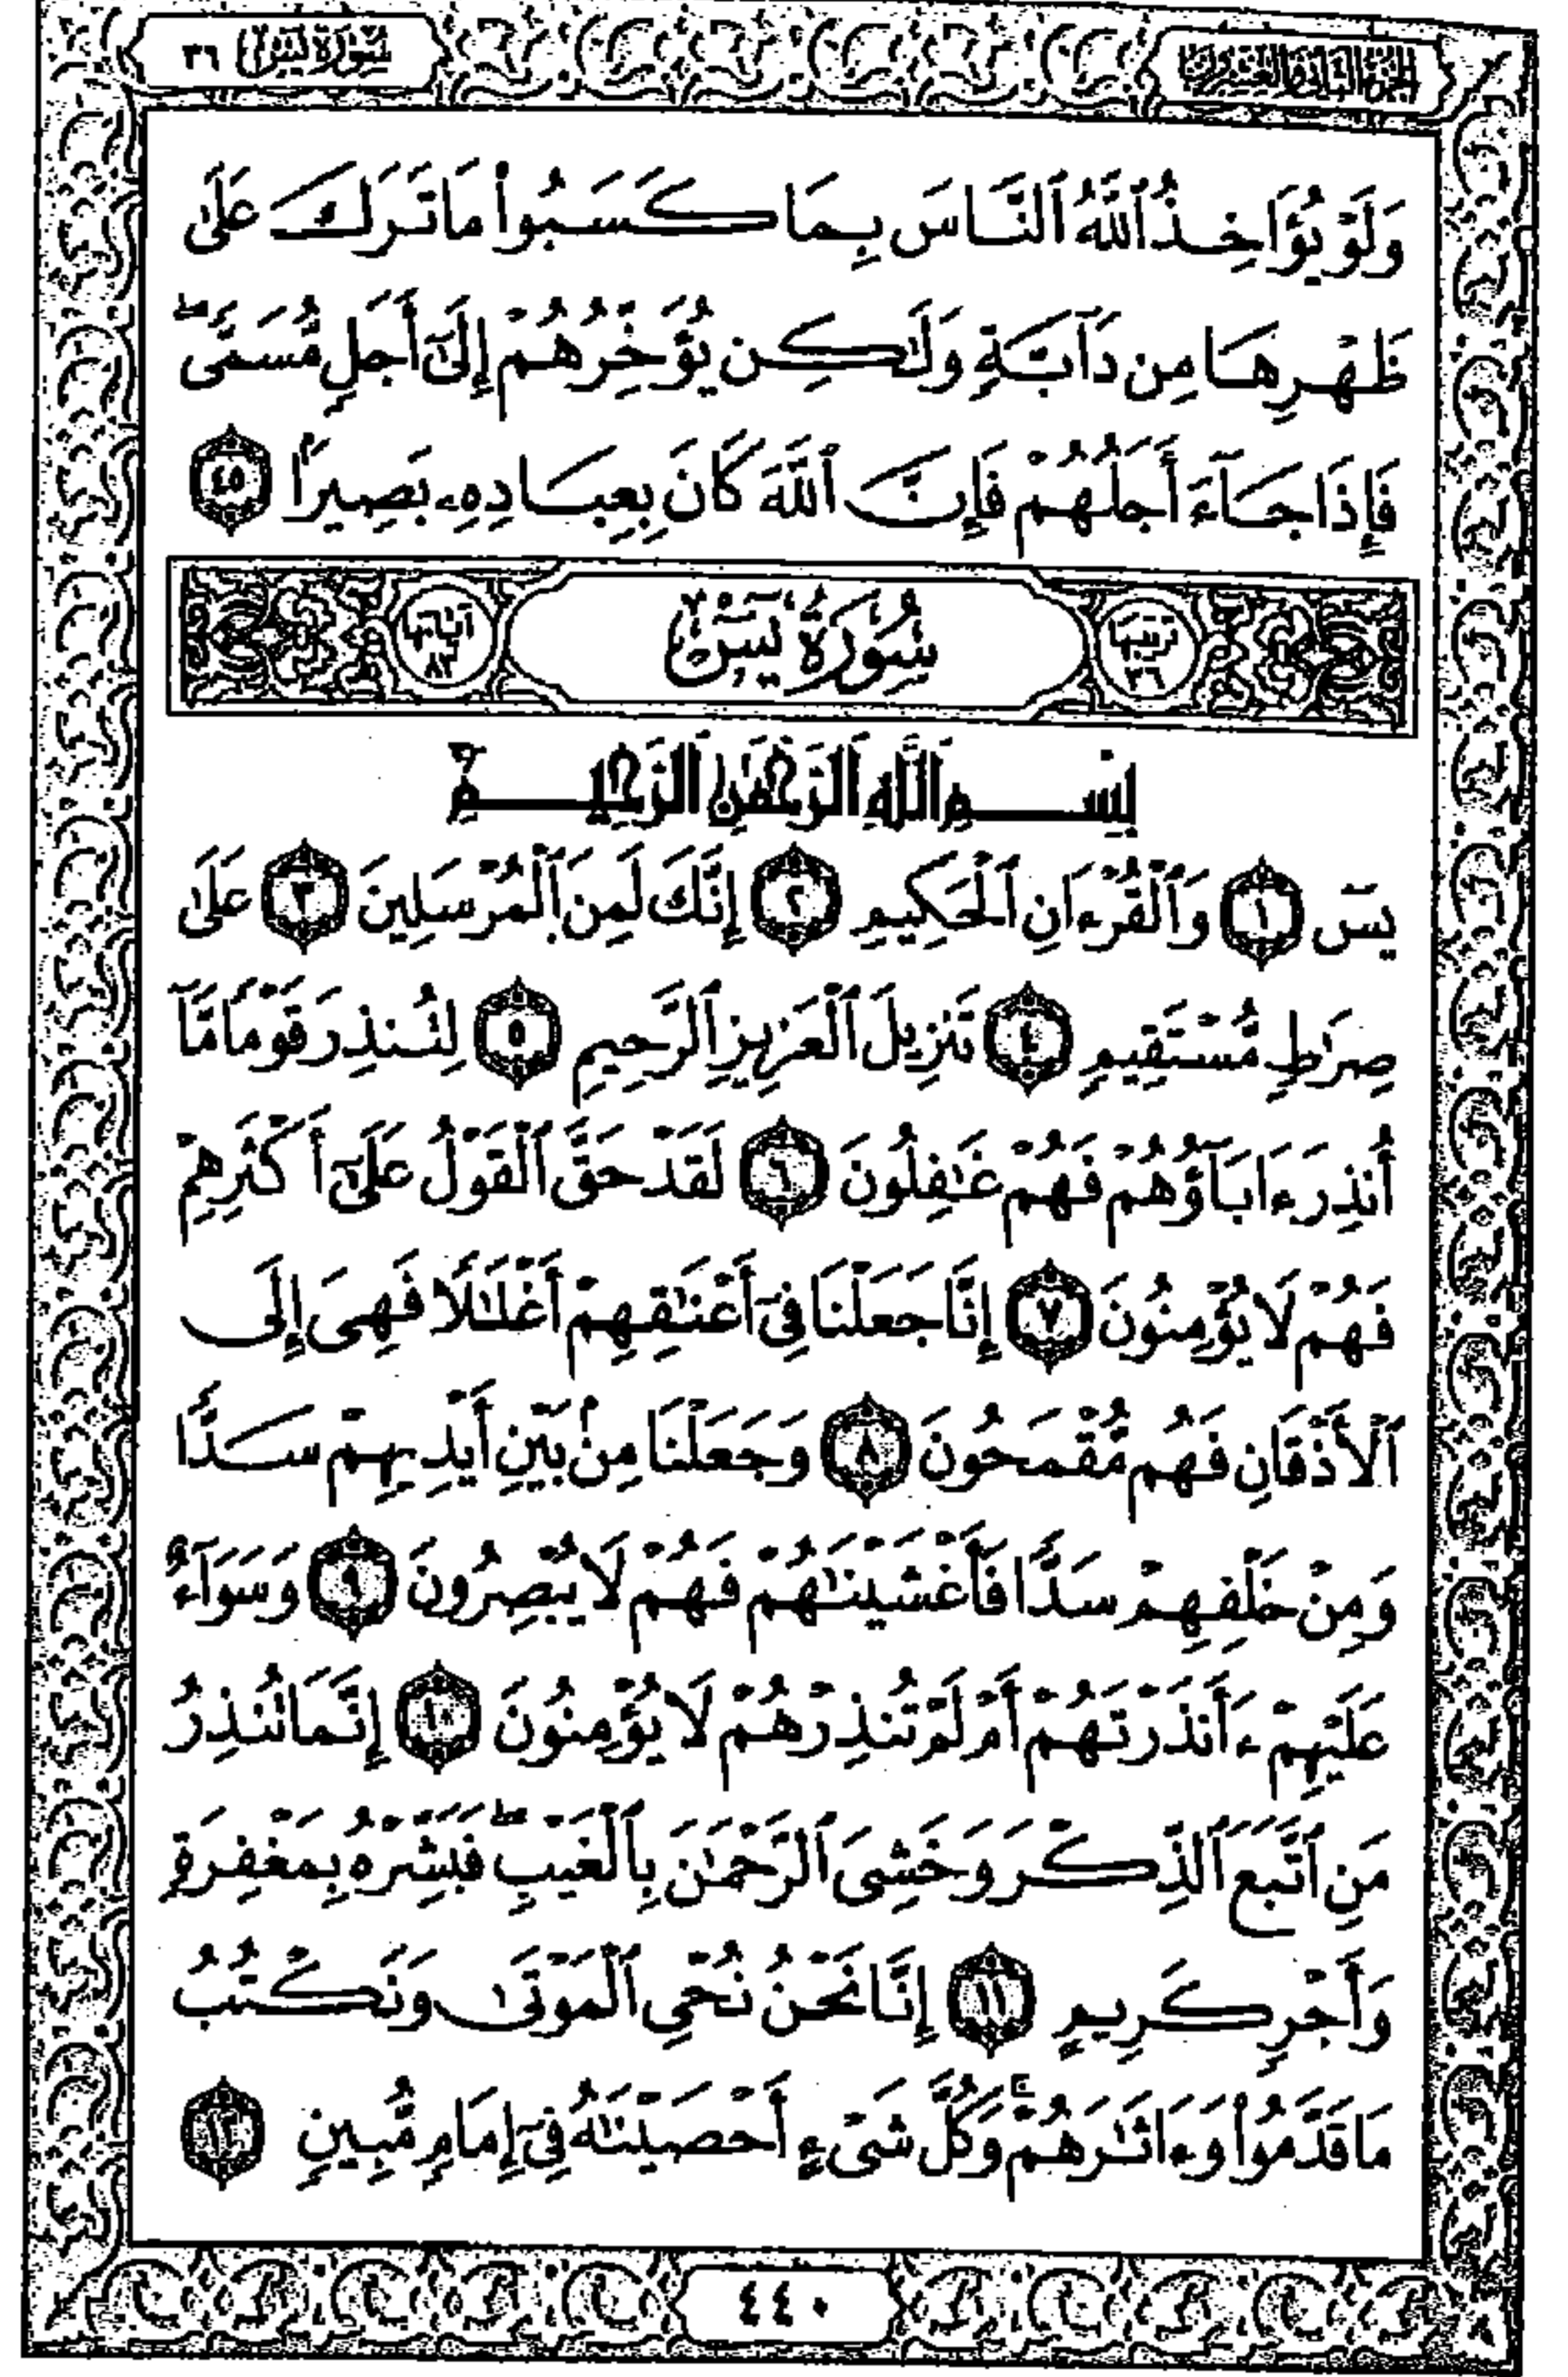 الجزء الثاني والعشرون
سورة يس ٣٦
وَلَوْ يُؤَاخِذُ ٱللَّهُ ٱلنَّاسَ بِمَا كَسَبُوا۟ مَا تَرَكَ عَلَىٰ
ظَهْرِهَا مِن دَآبَّةٍ وَلَٰكِن يُؤَخِّرُهُمْ إِلَىٰٓ أَجَلٍ مُّسَمًّى ۖ
فَإِذَا جَآءَ أَجَلُهُمْ فَإِنَّ ٱللَّهَ كَانَ بِعِبَادِهِۦ بَصِيرًۢا ٤٥
ترتيبها ٣٦ سُورَةُ يسٓ آياتها ٨٣
بِسْمِ ٱللَّهِ ٱلرَّحْمَٰنِ ٱلرَّحِيمِ
يسٓ ١ وَٱلْقُرْءَانِ ٱلْحَكِيمِ ٢ إِنَّكَ لَمِنَ ٱلْمُرْسَلِينَ ٣ عَلَىٰ
صِرَٰطٍ مُّسْتَقِيمٍ ٤ تَنزِيلَ ٱلْعَزِيزِ ٱلرَّحِيمِ ٥ لِتُنذِرَ قَوْمًا مَّآ
أُنذِرَ ءَابَآؤُهُمْ فَهُمْ غَٰفِلُونَ ٦ لَقَدْ حَقَّ ٱلْقَوْلُ عَلَىٰٓ أَكْثَرِهِمْ
فَهُمْ لَا يُؤْمِنُونَ ٧ إِنَّا جَعَلْنَا فِىٓ أَعْنَٰقِهِمْ أَغْلَٰلًا فَهِىَ إِلَى
ٱلْأَذْقَانِ فَهُم مُّقْمَحُونَ ٨ وَجَعَلْنَا مِنۢ بَيْنِ أَيْدِيهِمْ سَدًّا
وَمِنْ خَلْفِهِمْ سَدًّا فَأَغْشَيْنَٰهُمْ فَهُمْ لَا يُبْصِرُونَ ٩ وَسَوَآءٌ
عَلَيْهِمْ ءَأَنذَرْتَهُمْ أَمْ لَمْ تُنذِرْهُمْ لَا يُؤْمِنُونَ ١٠ إِنَّمَا تُنذِرُ
مَنِ ٱتَّبَعَ ٱلذِّكْرَ وَخَشِىَ ٱلرَّحْمَٰنَ بِٱلْغَيْبِ ۖ فَبَشِّرْهُ بِمَغْفِرَةٍ
وَأَجْرٍ كَرِيمٍ ١١ إِنَّا نَحْنُ نُحْىِ ٱلْمَوْتَىٰ وَنَكْتُبُ
مَا قَدَّمُوا۟ وَءَاثَٰرَهُمْ ۚ وَكُلَّ شَىْءٍ أَحْصَيْنَٰهُ فِىٓ إِمَامٍ مُّبِينٍ ١٢
٤٤٠